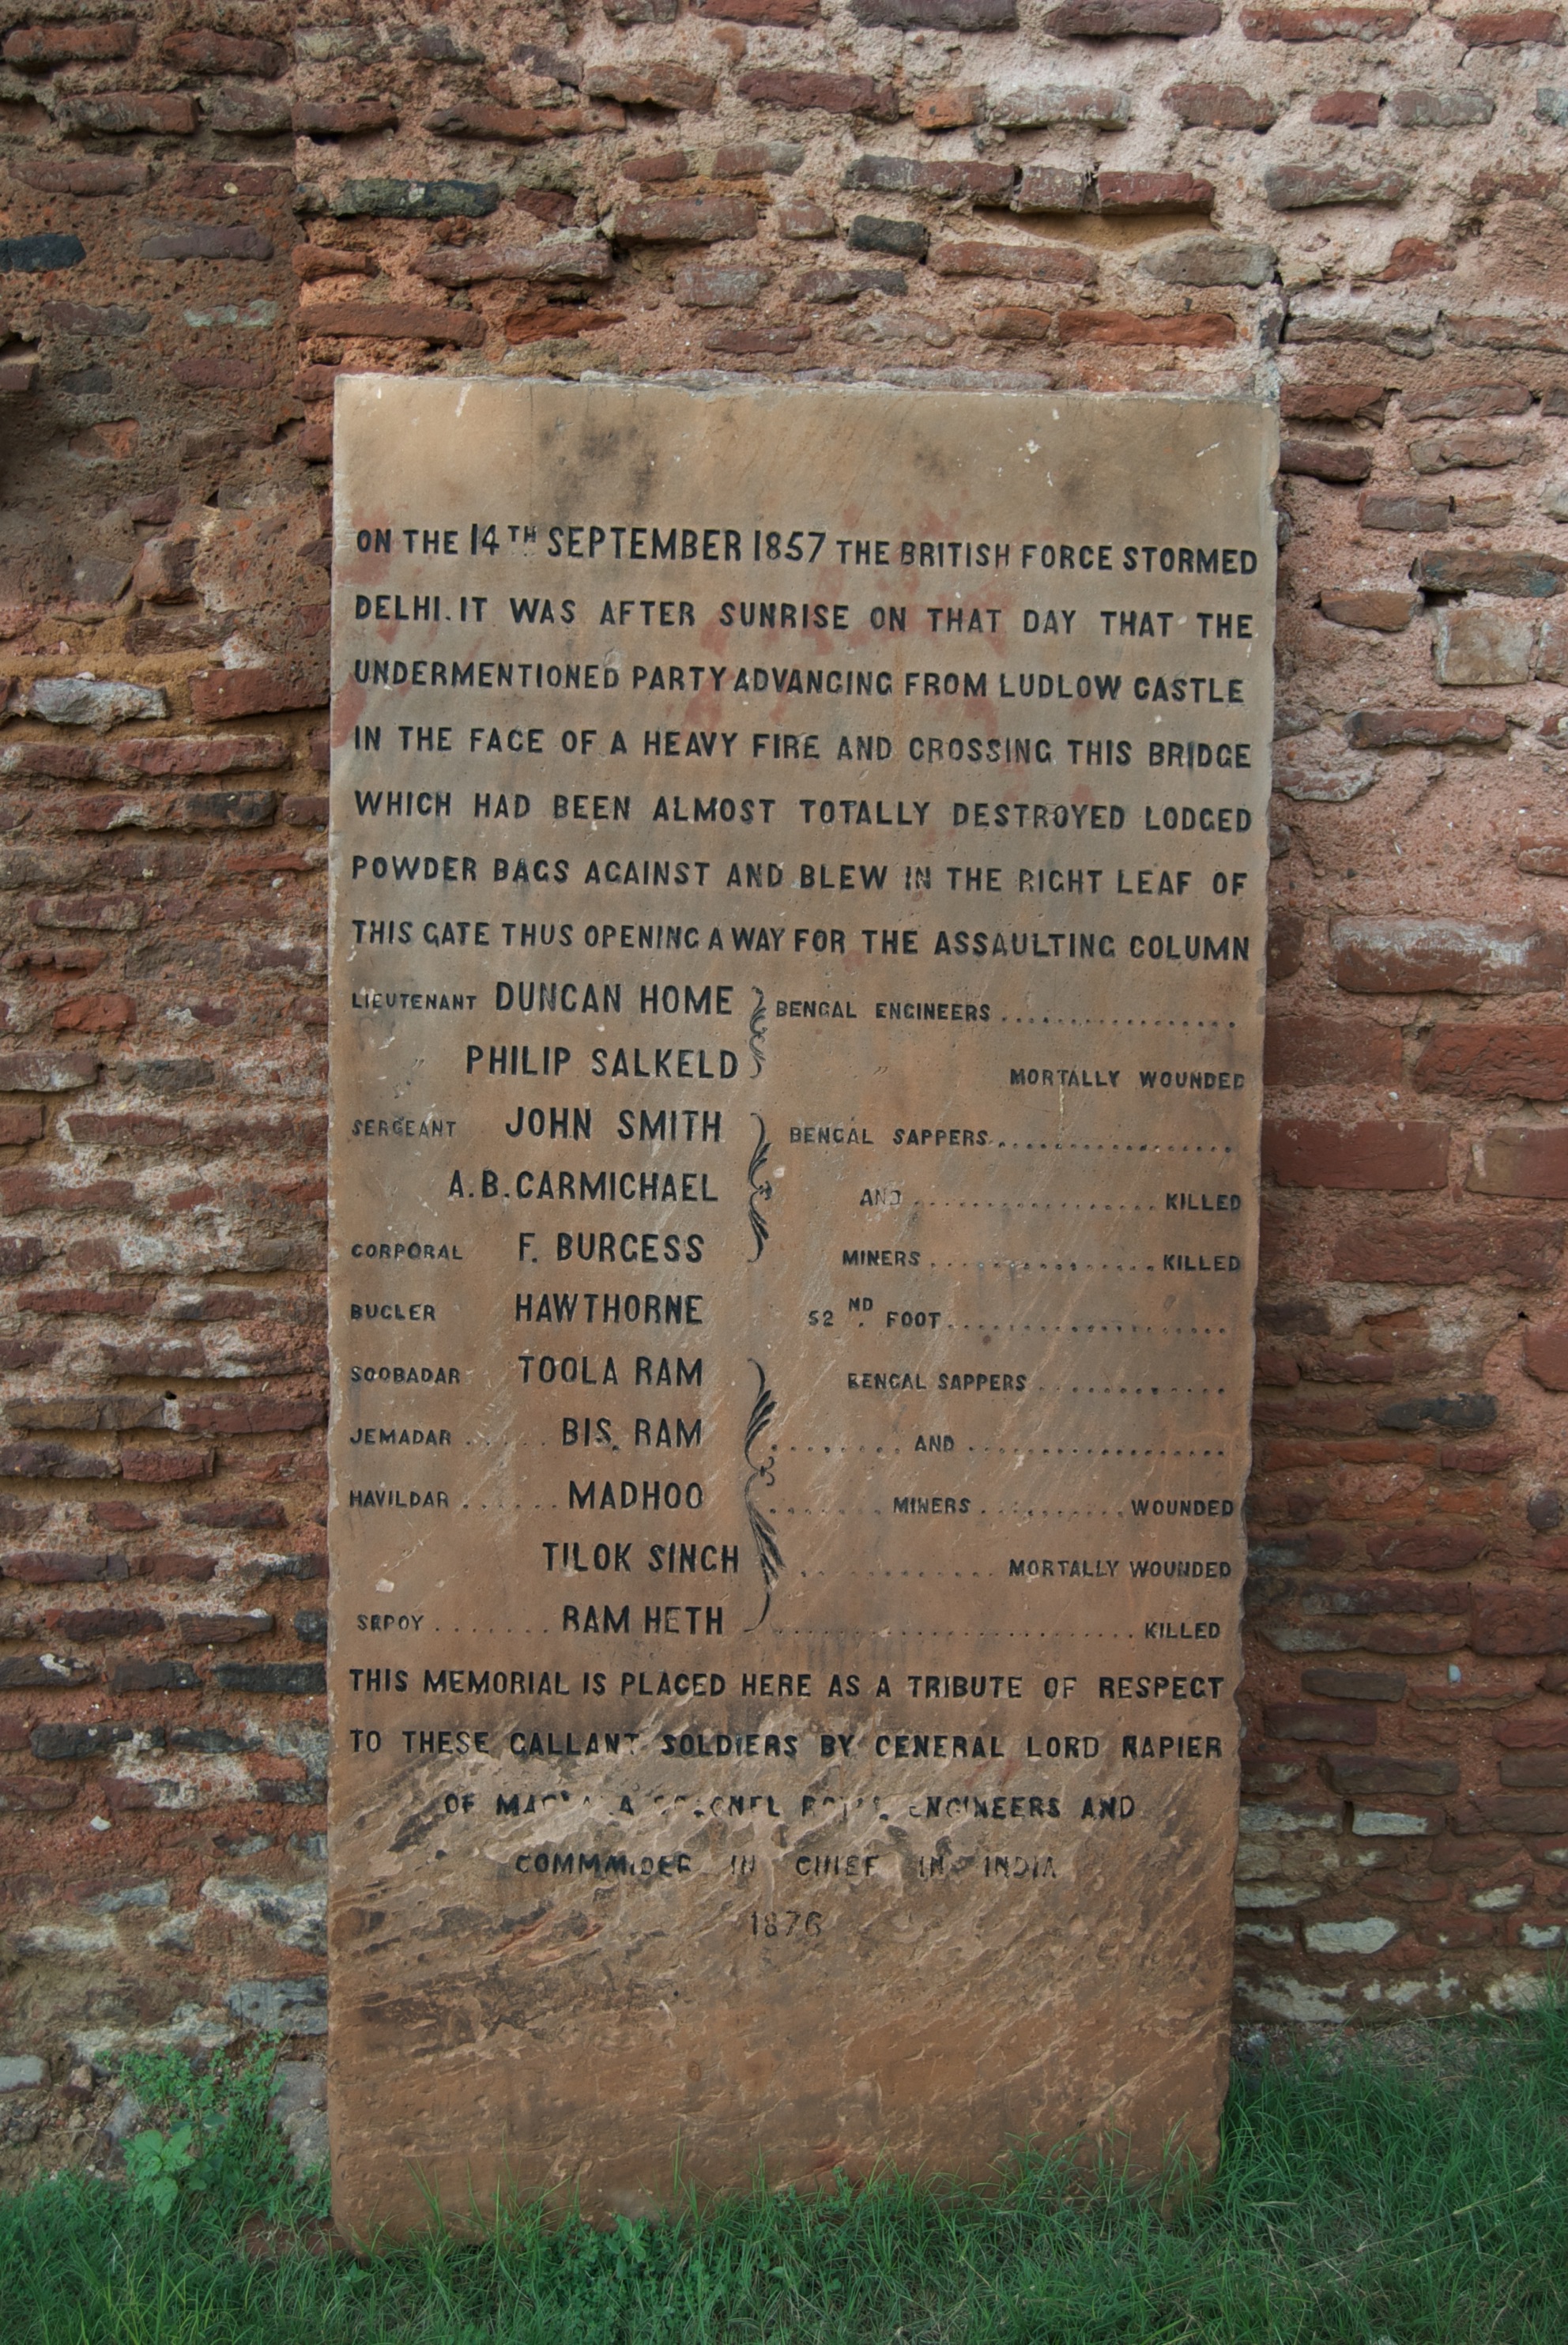 ON THE 14TH SEPTEMBER 1857 THE BRITISH FORCE STORMED
DELHI. IT WAS AFTER SUNRISE ON THAT DAY THAT THE
UNDERMENTIONED PARTY ADVANCING FROM LUDLOW CASTLE
IN THE FACE OF A HEAVY FIRE AND CROSSING THIS BRIDGE
WHICH HAD BEEN ALMOST TOTALLY DESTROYED LODGED
POWDER BAGS AGAINST AND BLEW IN THE RIGHT LEAF OF
THIS GATE THUS OPENING A WAY FOR THE ASSAULTING COLUMN
LIEUTENANT DUNCAN HOME BENGAL ENGINEERS ................
" PHILIP SALKELD " MORTALLY WOUNDED
SERGEANT JOHN SMITH BENGAL SAPPERS................
A.B.CARMICHAEL AND ................ KILLED
CORPORAL F. BURGESS MINERS ............... KILLED
BUGLER HAWTHORNE 52ND. FOOT...................
SOOBADAR TOOLA RAM BENGAL SAPPERS ............
JEMADAR ...... BIS. RAM ........ AND .................
HAVILDAR ....... MADHOO ....... MINERS .......... WOUNDED
TILOK SINGH ............ MORTALLY WOUNDED
SEPOY ........ RAM HETH ....................... KILLED
THIS MEMORIAL IS PLACED HERE AS A TRIBUTE OF RESPECT
TO THESE GALLANT SOLDIERS BY GENERAL LORD NAPIER
OF COLONEL ENGINEERS AND
IN CHIEF IN INDIA
1876